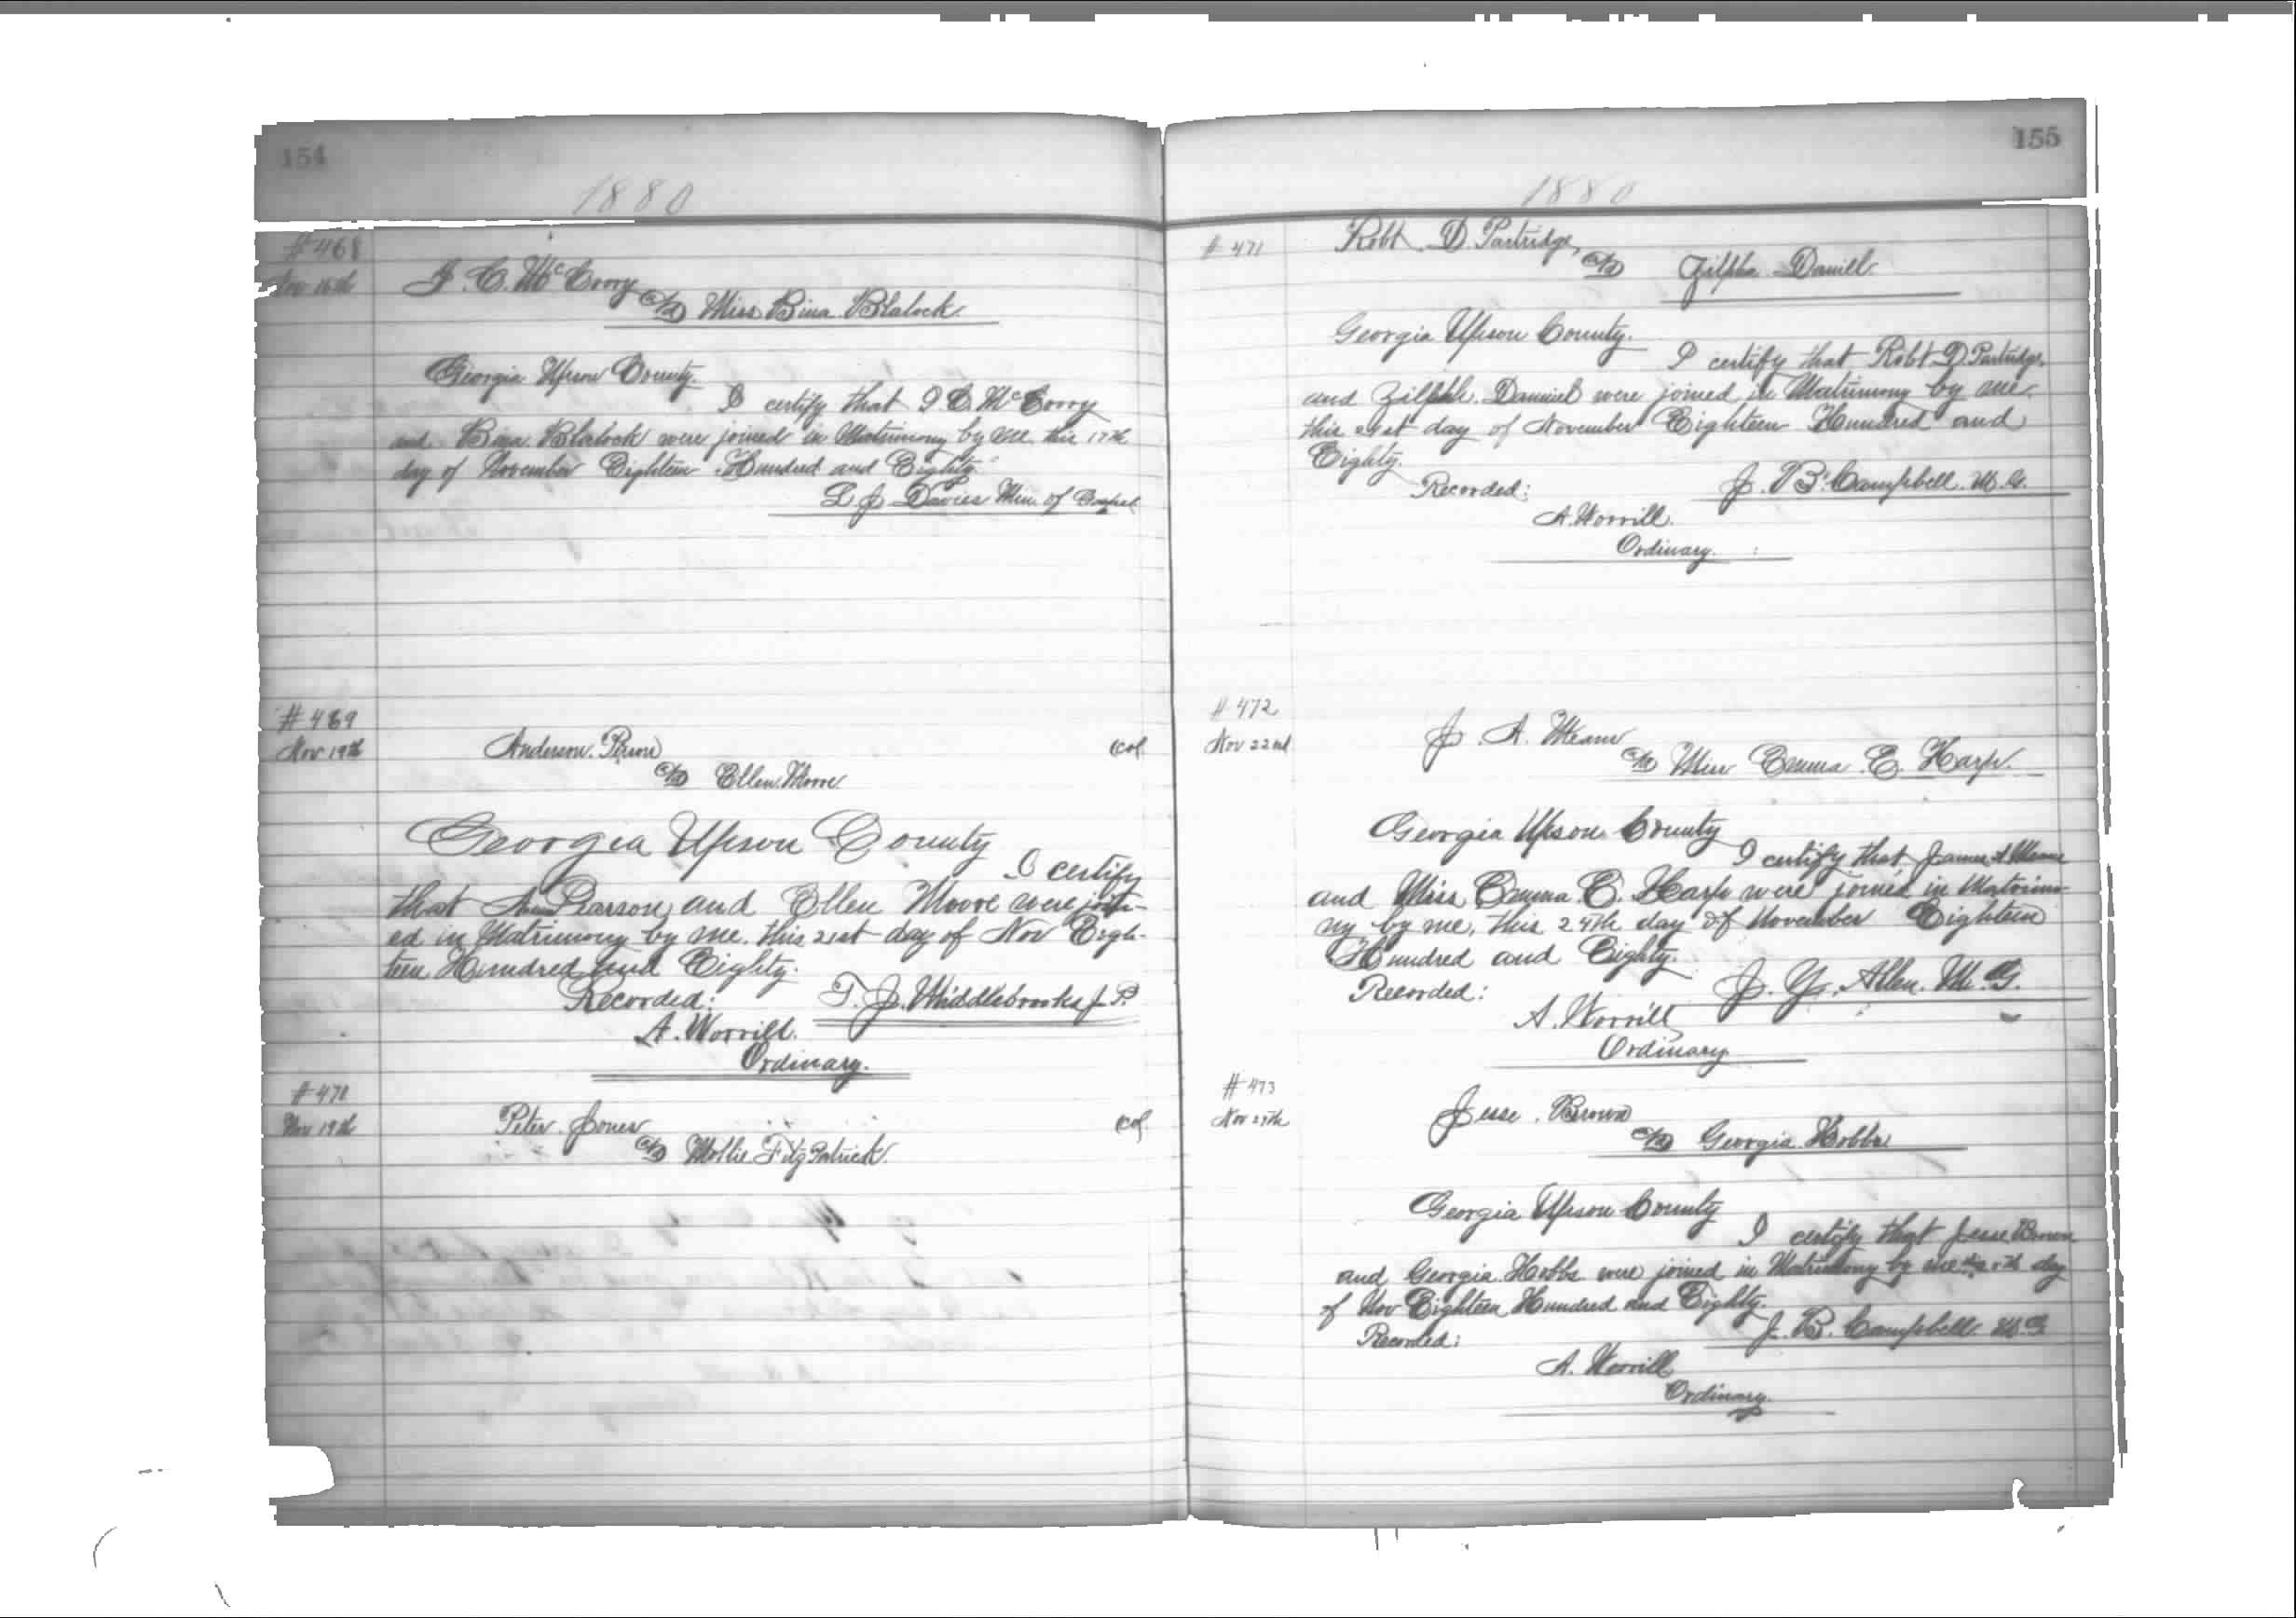 154
1880
#468
Nov 16th
J. C. McCrory
and Miss Bina Blalock
Georgia Upson County.
I certify that J C McCrory
and Bina Blalock were joined in Matrimony by me this 17th
day of November Eighteen Hundred and Eighty.
L J Davies Min. of Gospel
#469
Nov 19th
Anderson
Col
and Ellen Moore
Georgia Upson County
I certify
that Pearson and Ellen Moore were join-
ed in Matrimony by me. this 21st day of Nov Eigh-
teen Hundred and Eighty.
Recorded: T. J. Middlebrooks J P.
A. Worrill.
Ordinary.
#470
Nov 19th
Peter Jones
Col
and Mollie FitzPatrick.
155
1880
#471
Robt. D Partridge,
and Zilpha Daniel
Georgia Upson County.
I certify that Robt D Partridge,
and Zilpha Danniel were joined in Matrimony by me.
this 21st day of November Eighteen Hundred and
Eighty.
Recorded: J. B. Campbell. M. G.
A. Worrill.
Ordinary.
#472
Nov 22nd
J. A. Means
and Miss Emma. E. Harp.
Georgia Upson County
I certify that James A Means
and Miss Emma E. Harp were joined in Matrimo-
ny by me, this 24th day of November Eighteen
Hundred and Eighty.
Recorded: J. Y. Allen. M. G.
A. Worrill
Ordinary
#473
Nov 27th
Jesse Brown
and Georgia Hobbs
Georgia Upson County
I certify that Jesse Brown
and Georgia Hobbs were joined in Matrimony by me day
of Nov Eighteen Hundred and Eighty.
Recorded: J. B. Campbell. M. G.
A. Worrill
Ordinary.